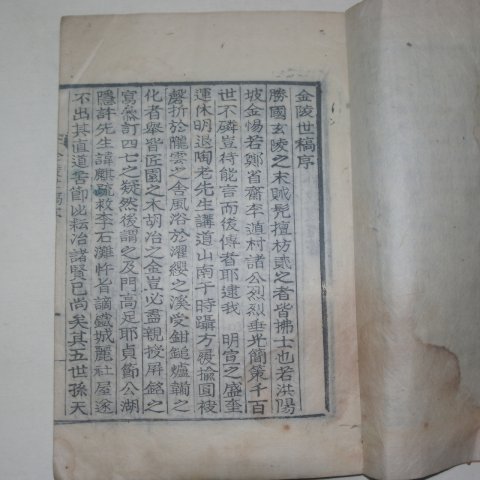 金陵世稿序
勝國玄陵之末賊髡擅枋貳之者皆拂士也若洪陽
坡金惕若鄭省齋李遁村諸公烈烈垂光簡策千百
世不磷豈待能言而後傳者耶逮我 明宣之盛奎
運休明退陶老先生講道山南于時躡方履揄圓袂
磬折於隴雲之舍風浴於濯纓之溪受鉗鎚爐韛之
化者擧皆匠園之木胡冶之金豈必盡親授屛銘之
寫叅訂四七之疑然後謂之及門高足耶貞節公湖
隱許先生諱麒疏救李石灘忤旨謫鐵城麗社屋遂
不出其直道苦節與耘冶諸賢已尚矣其五世孫天